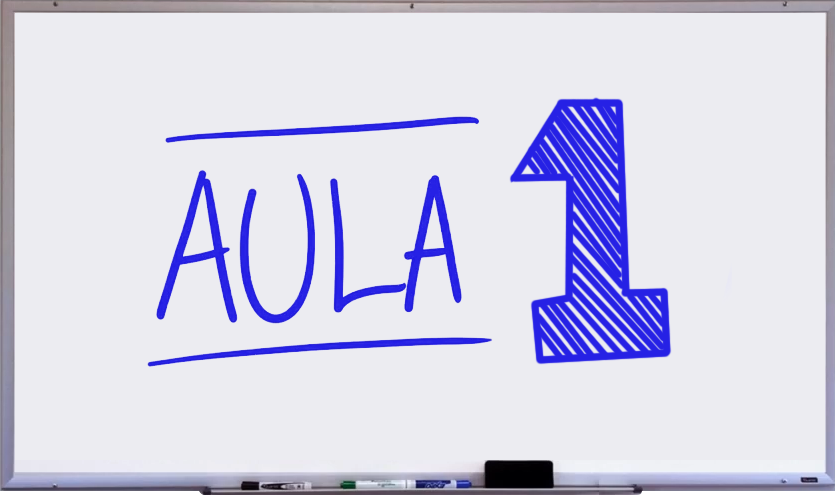 AULA 1